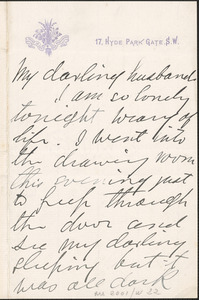 17, HYDE PARK GATE, S.W.
My darling husband
I am so lonely
tonight weary of
life. I went into
the drawing room
this evening just
to peep through
the door and
see my darling
sleeping but it
was all dark